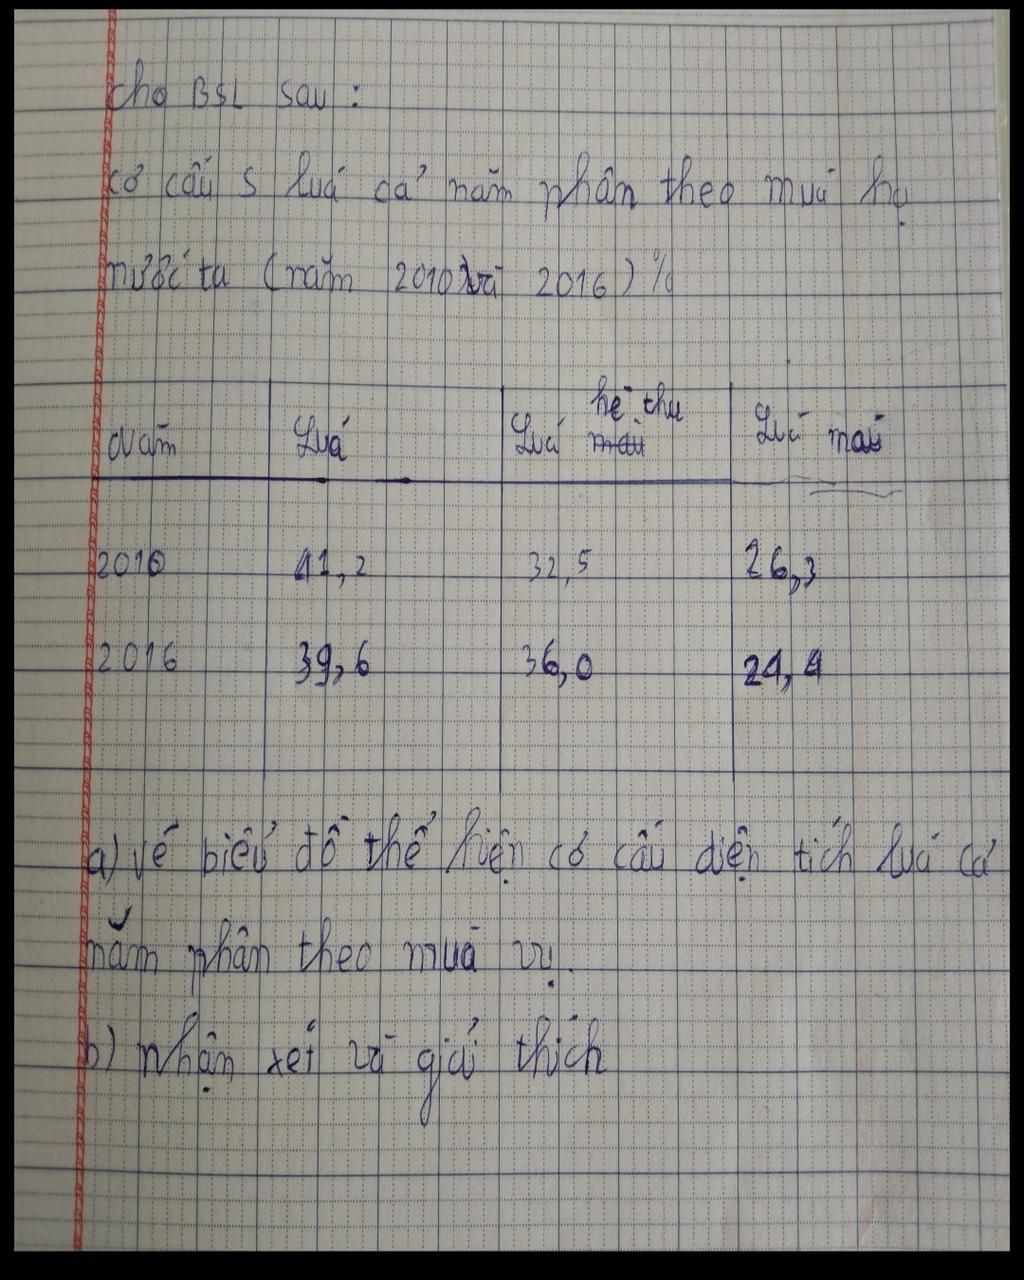 cho BSL sau :
cơ cấu S luá cả năm phân theo muà hạ
nước ta (năm 2010 và 2016) %
năm Luá Luá hè thu Luá mau
2010 41,2 32,5 26,3
2016 39,6 36,0 24,4
a) vẽ biểu đồ thể hiện cơ cấu diện tích luá cả
năm phân theo muà vụ.
b) nhận xét và giải thích